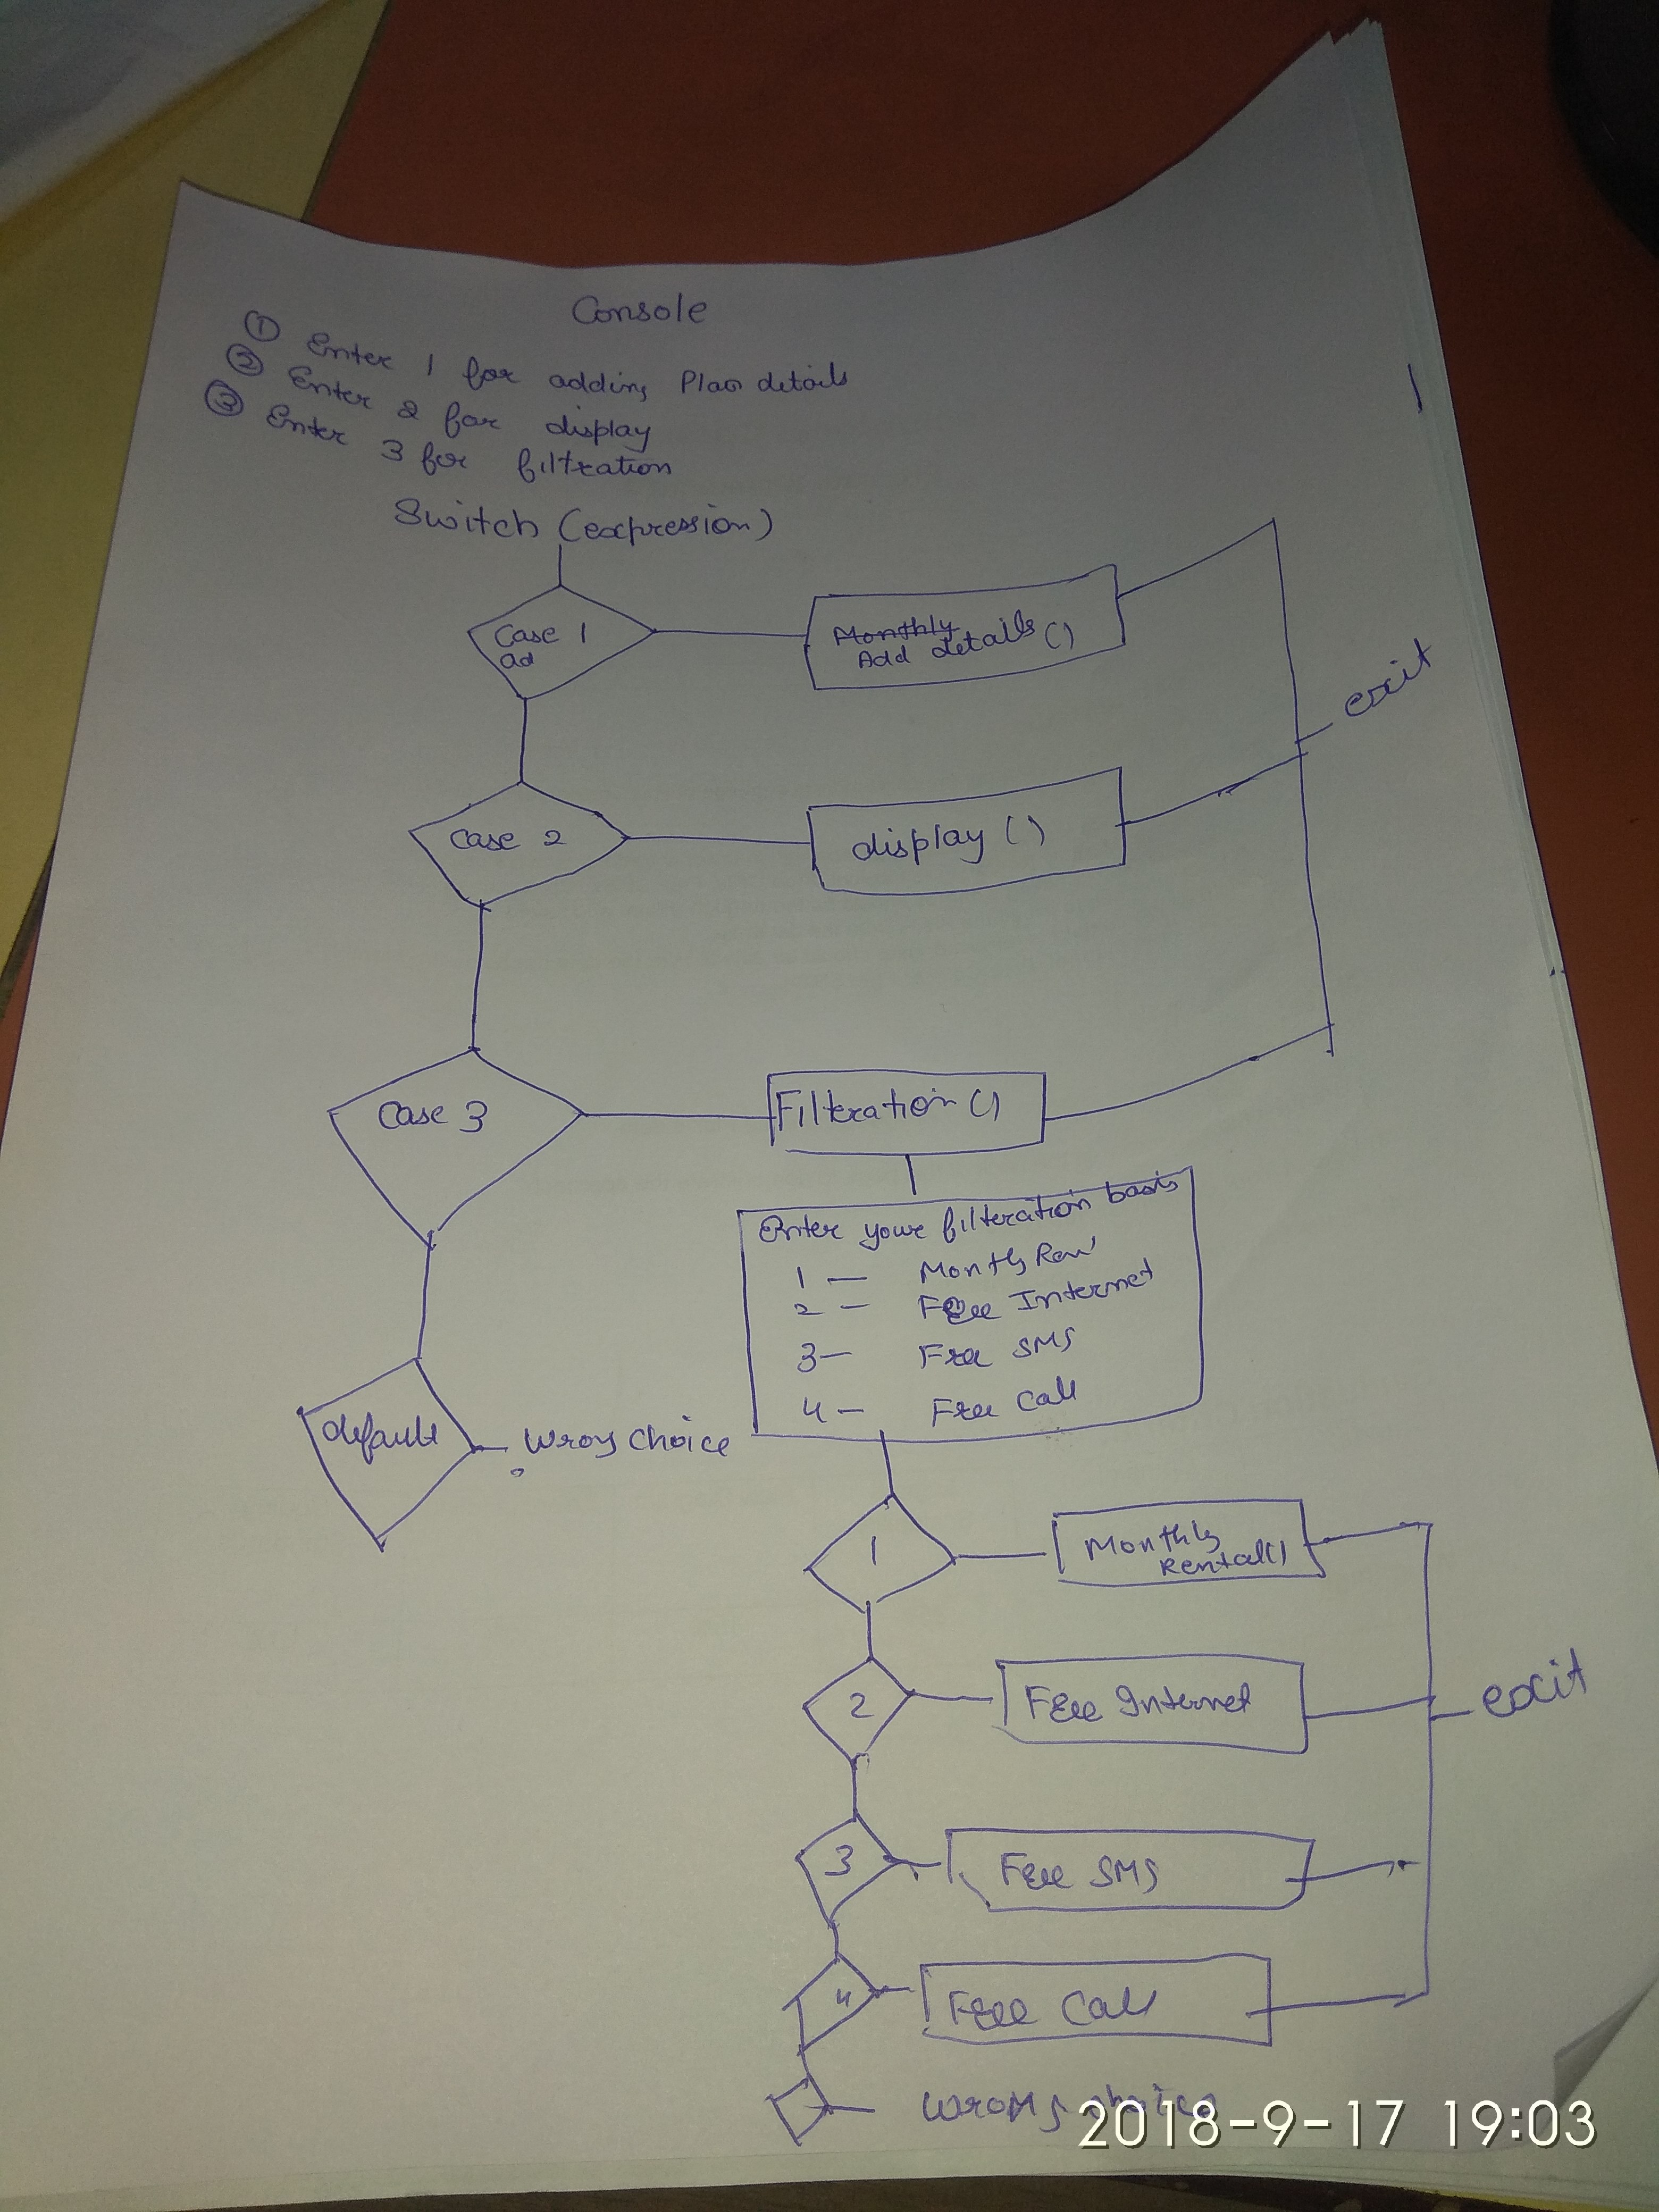 Console
① Enter 1 for adding Plan details
② Enter 2 for display
③ Enter 3 for filtration
Switch (expression)
Case 1
ad
Monthly
Add details ()
exit
Case 2
display ()
Case 3
Filteration ()
Enter your filteration basis
1 — Monthly Ren
2 — Free Internet
3 — Free SMS
4 — Free Call
default
Wrong Choice
1
Monthly
Rental()
2
Free Internet
exit
3
Free SMS
4
Free Call
Wrong choice
2018-9-17 19:03